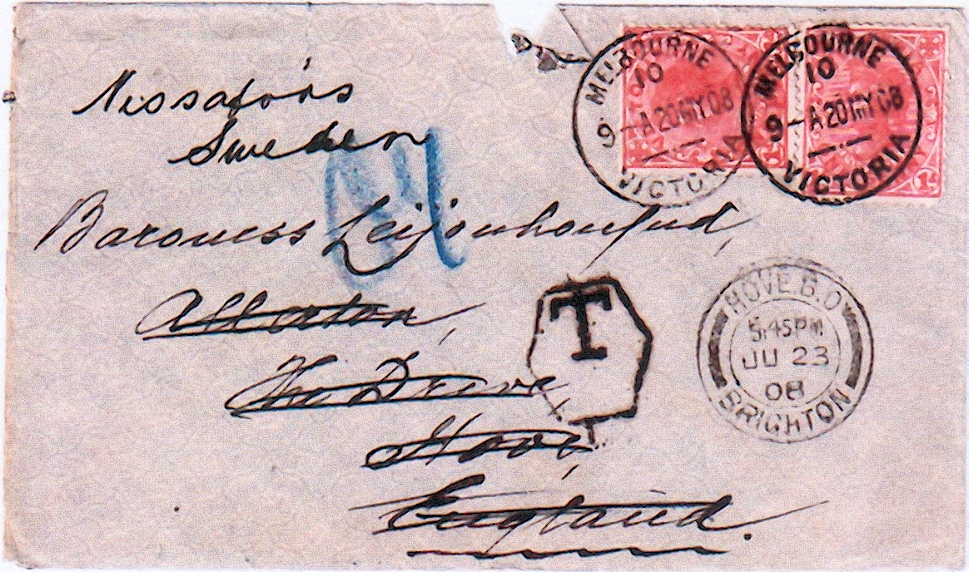 Nissafors
Sweden
Baroness Leijonhufvud,
Allerton,
The Drive,
Hove,
England.
MELBOURNE
10
9-A 20 MY 08
VICTORIA
MELBOURNE
10
9-A 20 MY 08
VICTORIA
T
HOVE.B.O
5.45PM
JU 23
08
BRIGHTON